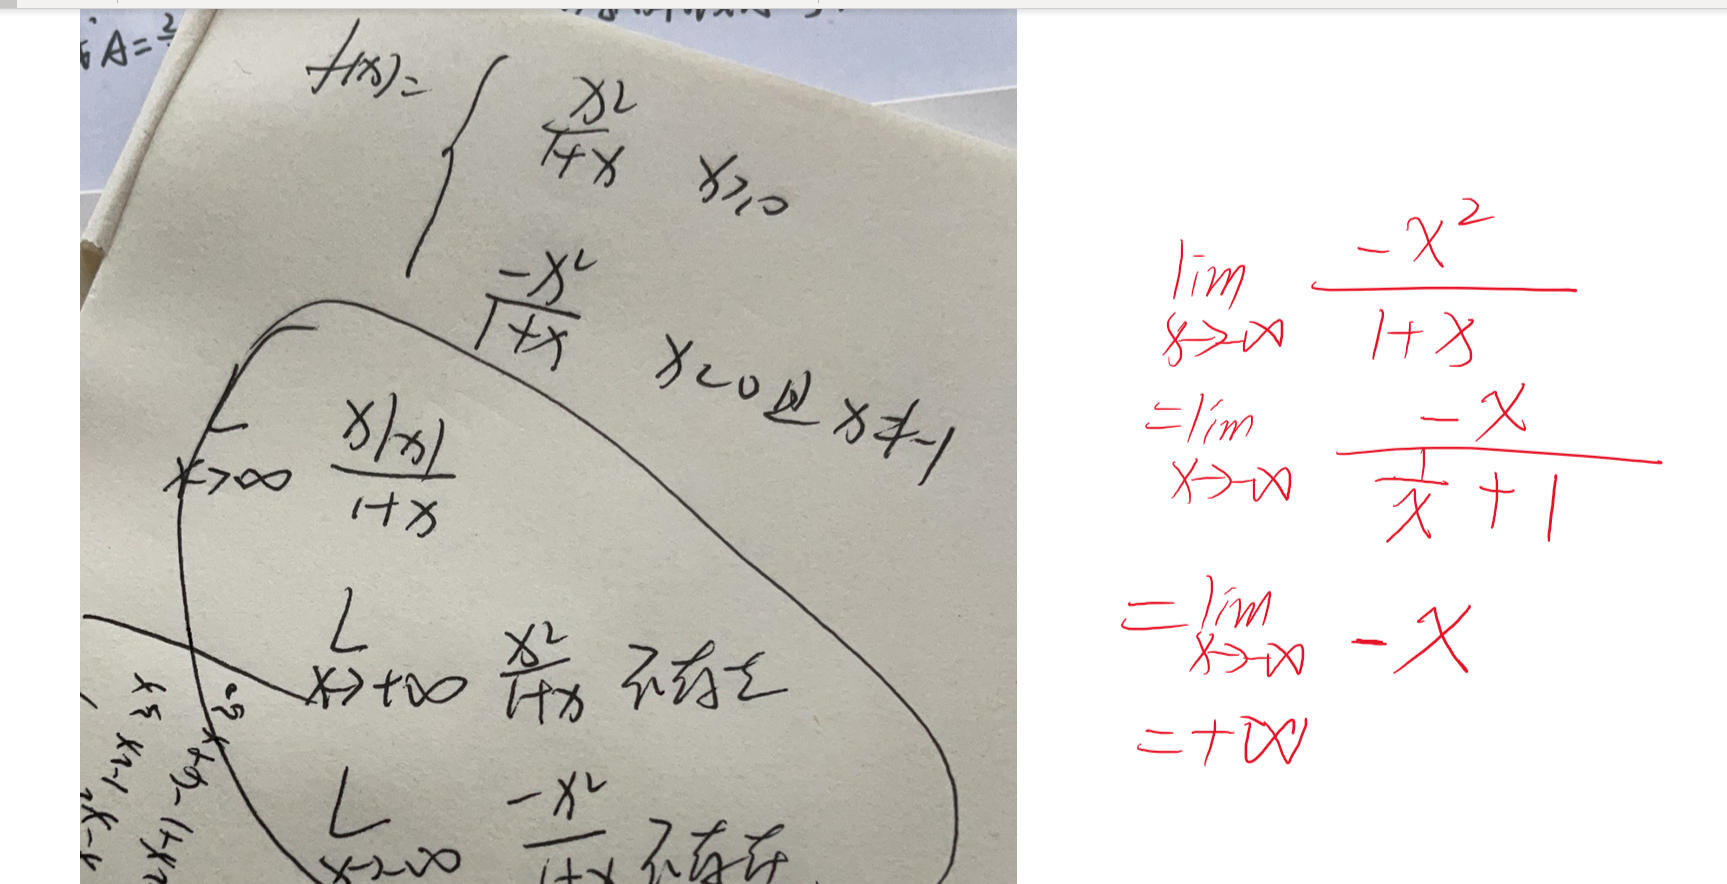 A=
f(x)= { x²/(1+x) x≥0
-x²/(1+x) x<0且x≠-1
L x→∞ x|x|/(1+x)
L x→+∞ x²/(1+x) 不存在
L x→-∞ -x²/(1+x) 不存在
lim x→-∞ -x²/(1+x)
=lim x→-∞ -x/(1/x+1)
=lim x→-∞ -x
=+∞